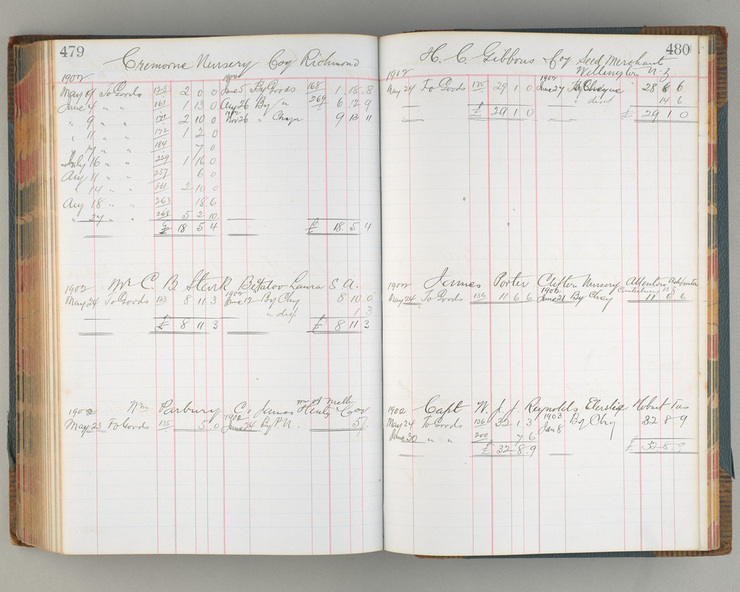 479
Cremorne Nursery Coy Richmond
1902
May 14 To Goods 122 2 0 0 June 5 By Goods 168 1 18 8
June 4 " " 161 1 13 0 Aug 26 By " 269 6 12 9
" 9 " " 171 2 10 0 Nov 26 " Cheque 9 13 11
" 11 " " 172 1 2 0
" " " 184 7 0
July 16 " " 229 1 16 0
Aug 11 " " 257 6 0
" 14 " " 261 2 10 0
Aug 18 " " 263 18 6
" 27 " " 268 5 2 10
£ 18 5 4 £ 18 5 4
1902 Mr C. B. Sterk Laura S A.
May 24 To Goods 133 8 11 3 June 12 By Chq 8 10 0
" disc 1 3
£ 8 11 3 £ 8 11 3
1902 Wm Parbury C/o James Henty & Coy Melb
May 23 To Goods 135 5 0 1902 June 24 By P.N. 5/
480
H. C. Gibbons & Coy Seed Merchant
Wellington N.Z
1902
May 24 To Goods 135 29 1 0 June 27 By Cheque 28 6 6
" disct 14 6
£ 29 1 0 £ 29 1 0
1902 James Porter Clifton Nursery
May 24 To Goods 136 11 6 6 1902 June 21 By Chq 11 6 6
1902 Capt W. J. J. Reynolds Hobart Tas
May 24 To Goods 136 32 1 3 1903 Jan 8 By Chq 32 8 9
June 30 " " 200 7 6
£ 32 8 9 £ 32 8 9